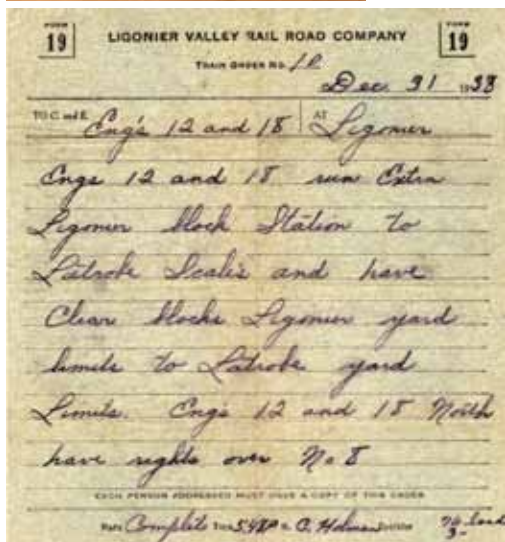 FORM 19 LIGONIER VALLEY RAIL ROAD COMPANY FORM 19
TRAIN ORDER NO. 10
Dec 31 1938
TO C. and E. Eng's 12 and 18 AT Ligonier
Engs 12 and 18 run Extra
Ligonier block Station to
Latrobe Scales and have
Clear blocks Ligonier yard
limits to Latrobe yard
Limits. Engs 12 and 18 North
have rights over No 8
EACH PERSON ADDRESSED MUST HAVE A COPY OF THIS ORDER
Made Complete Time 5:48P M.